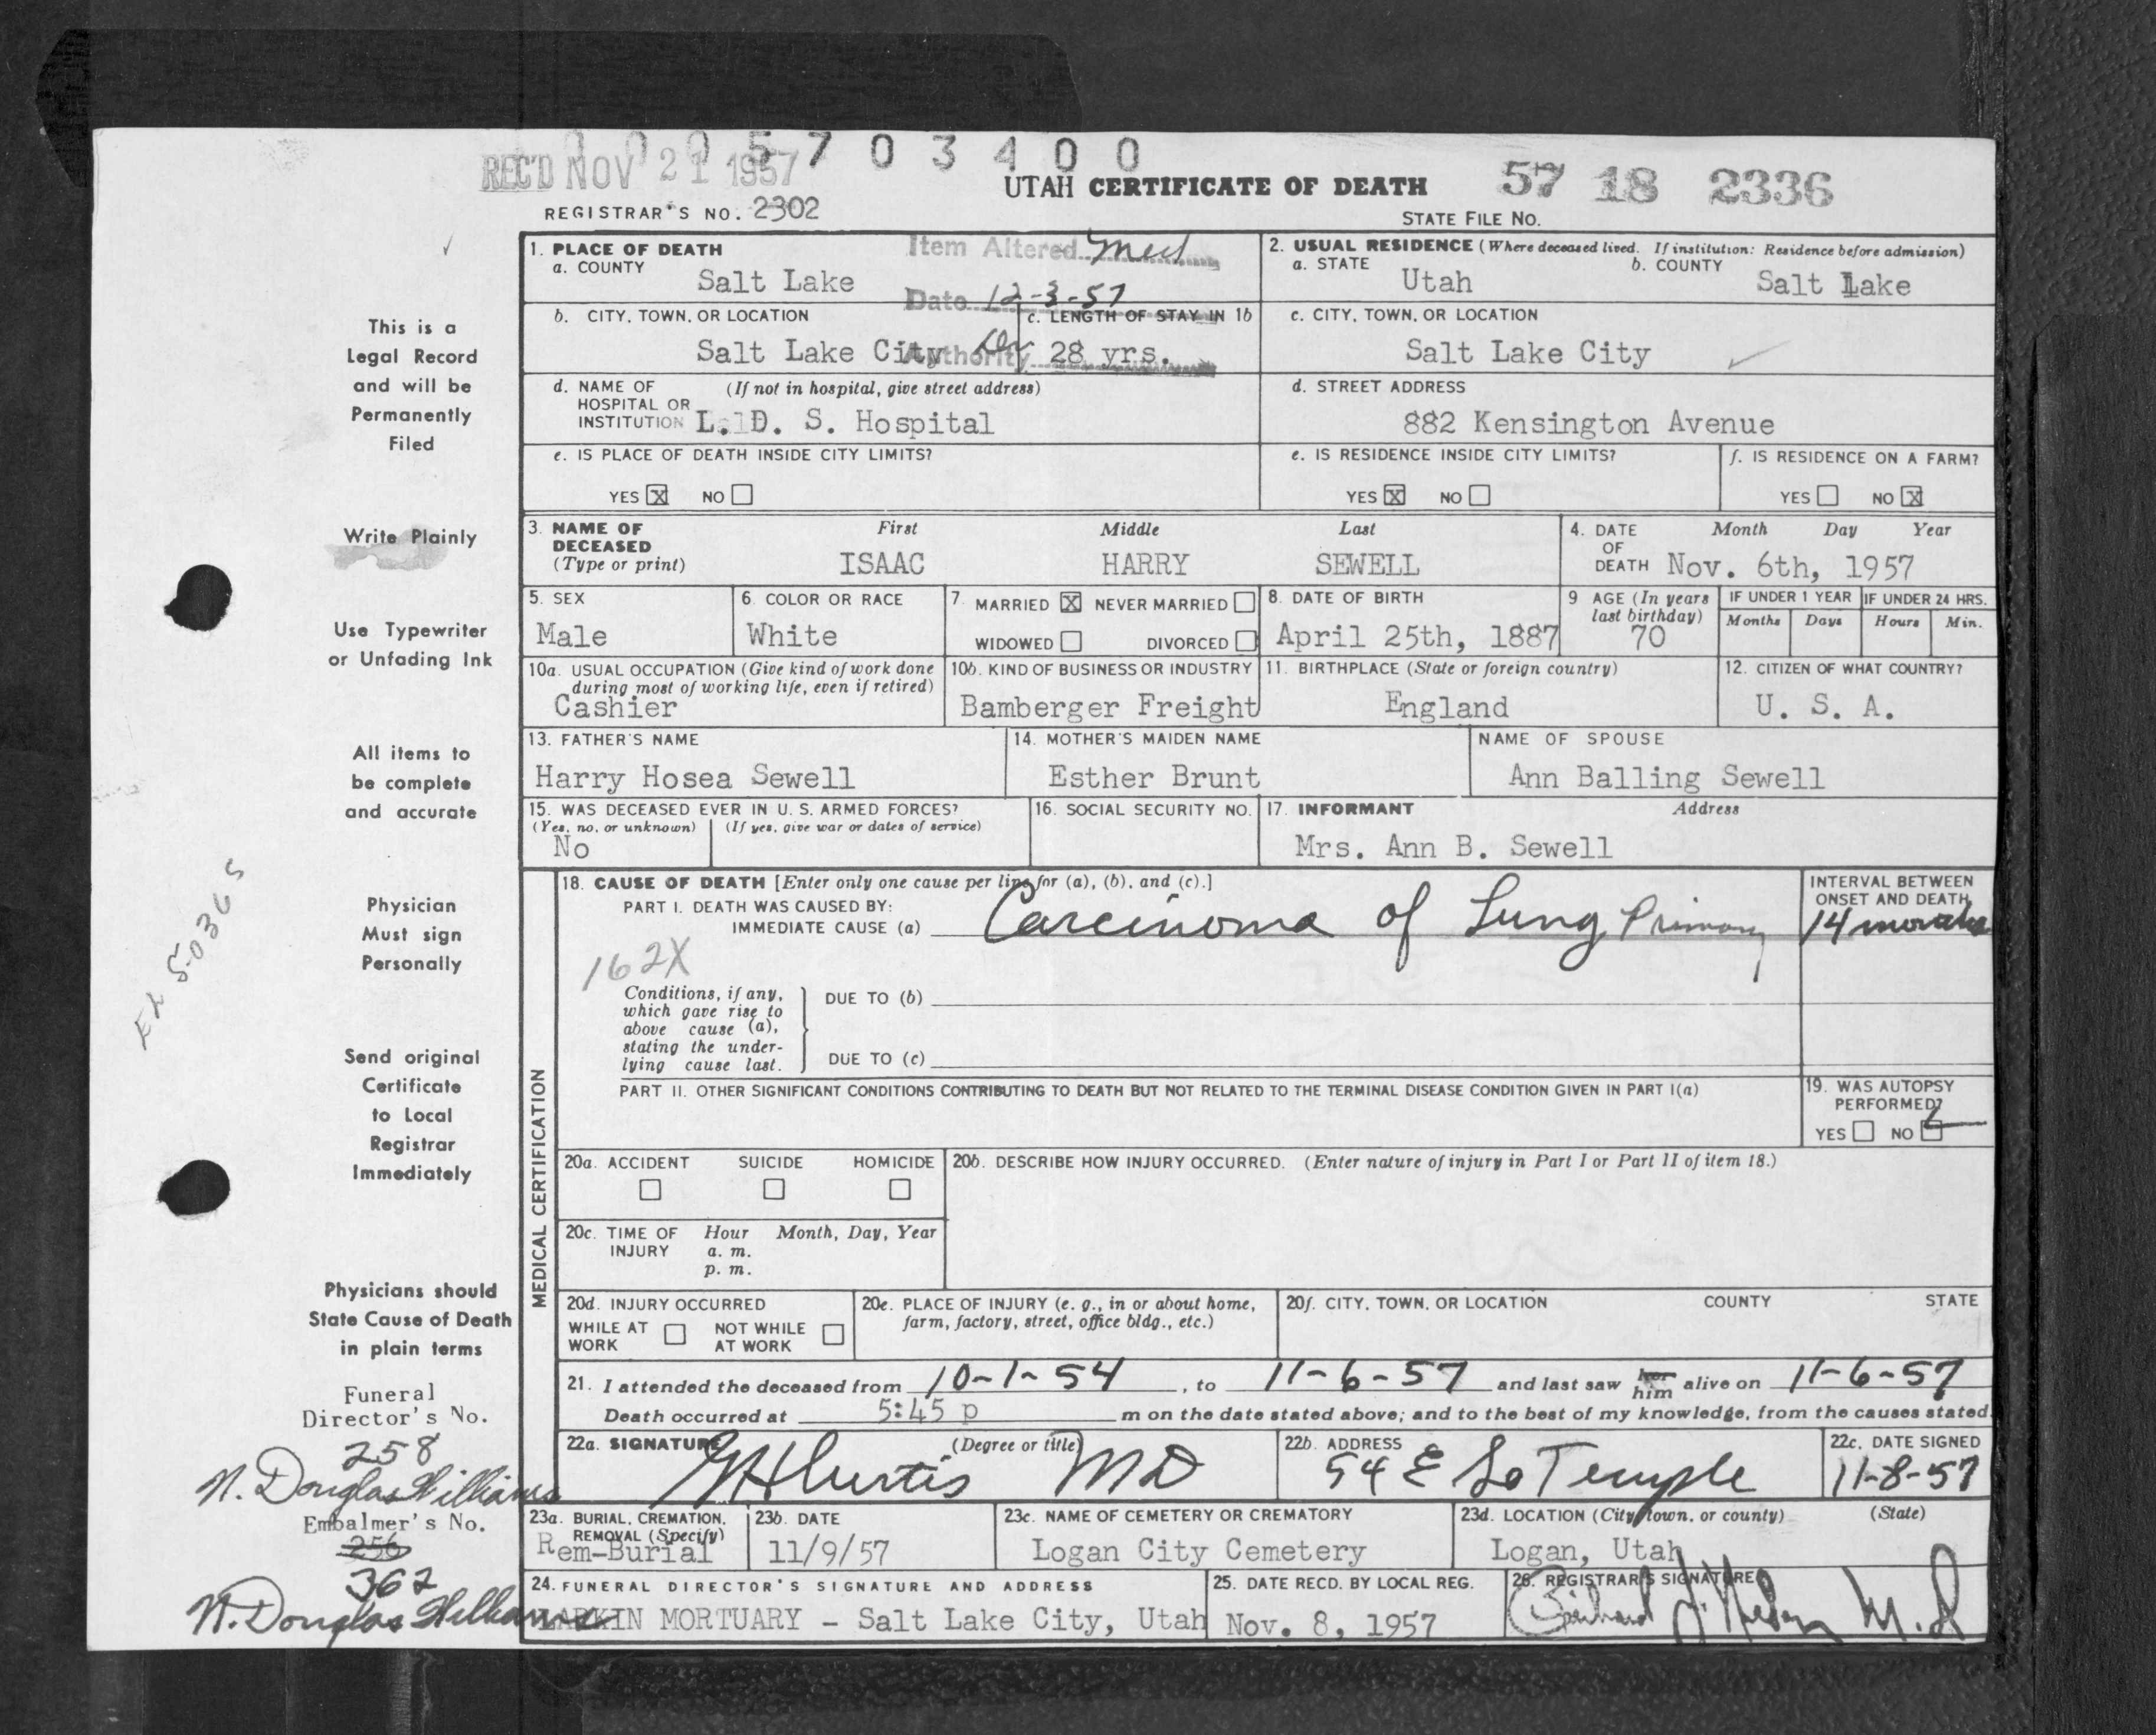 0 0 0 5 7 0 3 4 0 0
REC'D NOV 21 1957
UTAH CERTIFICATE OF DEATH
57 18 2336
REGISTRAR'S NO. 2302
STATE FILE NO.
1. PLACE OF DEATH
a. COUNTY
Salt Lake
Item Altered Med
Date 12-3-57
Authority
2. USUAL RESIDENCE (Where deceased lived. If institution: Residence before admission)
a. STATE
Utah
b. COUNTY
Salt Lake
b. CITY, TOWN, OR LOCATION
Salt Lake City
c. LENGTH OF STAY IN 1b
28 yrs.
c. CITY, TOWN, OR LOCATION
Salt Lake City
d. NAME OF HOSPITAL OR INSTITUTION
(If not in hospital, give street address)
L. D. S. Hospital
d. STREET ADDRESS
882 Kensington Avenue
e. IS PLACE OF DEATH INSIDE CITY LIMITS?
YES X NO
e. IS RESIDENCE INSIDE CITY LIMITS?
YES X NO
f. IS RESIDENCE ON A FARM?
YES NO X
3. NAME OF DECEASED
(Type or print)
First Middle Last
ISAAC HARRY SEWELL
4. DATE OF DEATH
Month Day Year
Nov. 6th, 1957
5. SEX
Male
6. COLOR OR RACE
White
7. MARRIED X NEVER MARRIED
WIDOWED DIVORCED
8. DATE OF BIRTH
April 25th, 1887
9 AGE (In years last birthday)
70
IF UNDER 1 YEAR
Months Days
IF UNDER 24 HRS.
Hours Min.
10a. USUAL OCCUPATION (Give kind of work done during most of working life, even if retired)
Cashier
10b. KIND OF BUSINESS OR INDUSTRY
Bamberger Freight
11. BIRTHPLACE (State or foreign country)
England
12. CITIZEN OF WHAT COUNTRY?
U. S. A.
13. FATHER'S NAME
Harry Hosea Sewell
14. MOTHER'S MAIDEN NAME
Esther Brunt
NAME OF SPOUSE
Ann Balling Sewell
15. WAS DECEASED EVER IN U. S. ARMED FORCES?
(Yes, no, or unknown) (If yes, give war or dates of service)
No
16. SOCIAL SECURITY NO.
17. INFORMANT
Address
Mrs. Ann B. Sewell
MEDICAL CERTIFICATION
18. CAUSE OF DEATH [Enter only one cause per line for (a), (b), and (c).]
PART I. DEATH WAS CAUSED BY:
IMMEDIATE CAUSE (a)
Carcinoma of Lung Primary
INTERVAL BETWEEN ONSET AND DEATH
14 months
162X
Conditions, if any, which gave rise to above cause (a), stating the underlying cause last.
DUE TO (b)
DUE TO (c)
PART II. OTHER SIGNIFICANT CONDITIONS CONTRIBUTING TO DEATH BUT NOT RELATED TO THE TERMINAL DISEASE CONDITION GIVEN IN PART I(a)
19. WAS AUTOPSY PERFORMED?
YES NO
20a. ACCIDENT SUICIDE HOMICIDE
20b. DESCRIBE HOW INJURY OCCURRED. (Enter nature of injury in Part I or Part II of item 18.)
20c. TIME OF INJURY
Hour Month, Day, Year
a. m.
p. m.
20d. INJURY OCCURRED
WHILE AT WORK
NOT WHILE AT WORK
20e. PLACE OF INJURY (e. g., in or about home, farm, factory, street, office bldg., etc.)
20f. CITY, TOWN, OR LOCATION COUNTY STATE
21. I attended the deceased from 10-1-54, to 11-6-57 and last saw her him alive on 11-6-57
Death occurred at 5:45 p m on the date stated above; and to the best of my knowledge, from the causes stated.
22a. SIGNATURE (Degree or title)
Curtis MD
22b. ADDRESS
54 E So Temple
22c. DATE SIGNED
11-8-57
23a. BURIAL, CREMATION, REMOVAL (Specify)
Rem-Burial
23b. DATE
11/9/57
23c. NAME OF CEMETERY OR CREMATORY
Logan City Cemetery
23d. LOCATION (City, town, or county) (State)
Logan, Utah
24. FUNERAL DIRECTOR'S SIGNATURE AND ADDRESS
LARKIN MORTUARY - Salt Lake City, Utah
25. DATE RECD. BY LOCAL REG.
Nov. 8, 1957
26. REGISTRAR'S SIGNATURE
M.D
This is a
Legal Record
and will be
Permanently
Filed
Write Plainly
Use Typewriter
or Unfading Ink
All items to
be complete
and accurate
Physician
Must sign
Personally
Send original
Certificate
to Local
Registrar
Immediately
Physicians should
State Cause of Death
in plain terms
Funeral
Director's No.
258
N. Douglas Williams
Embalmer's No.
256
362
N. Douglas Williams